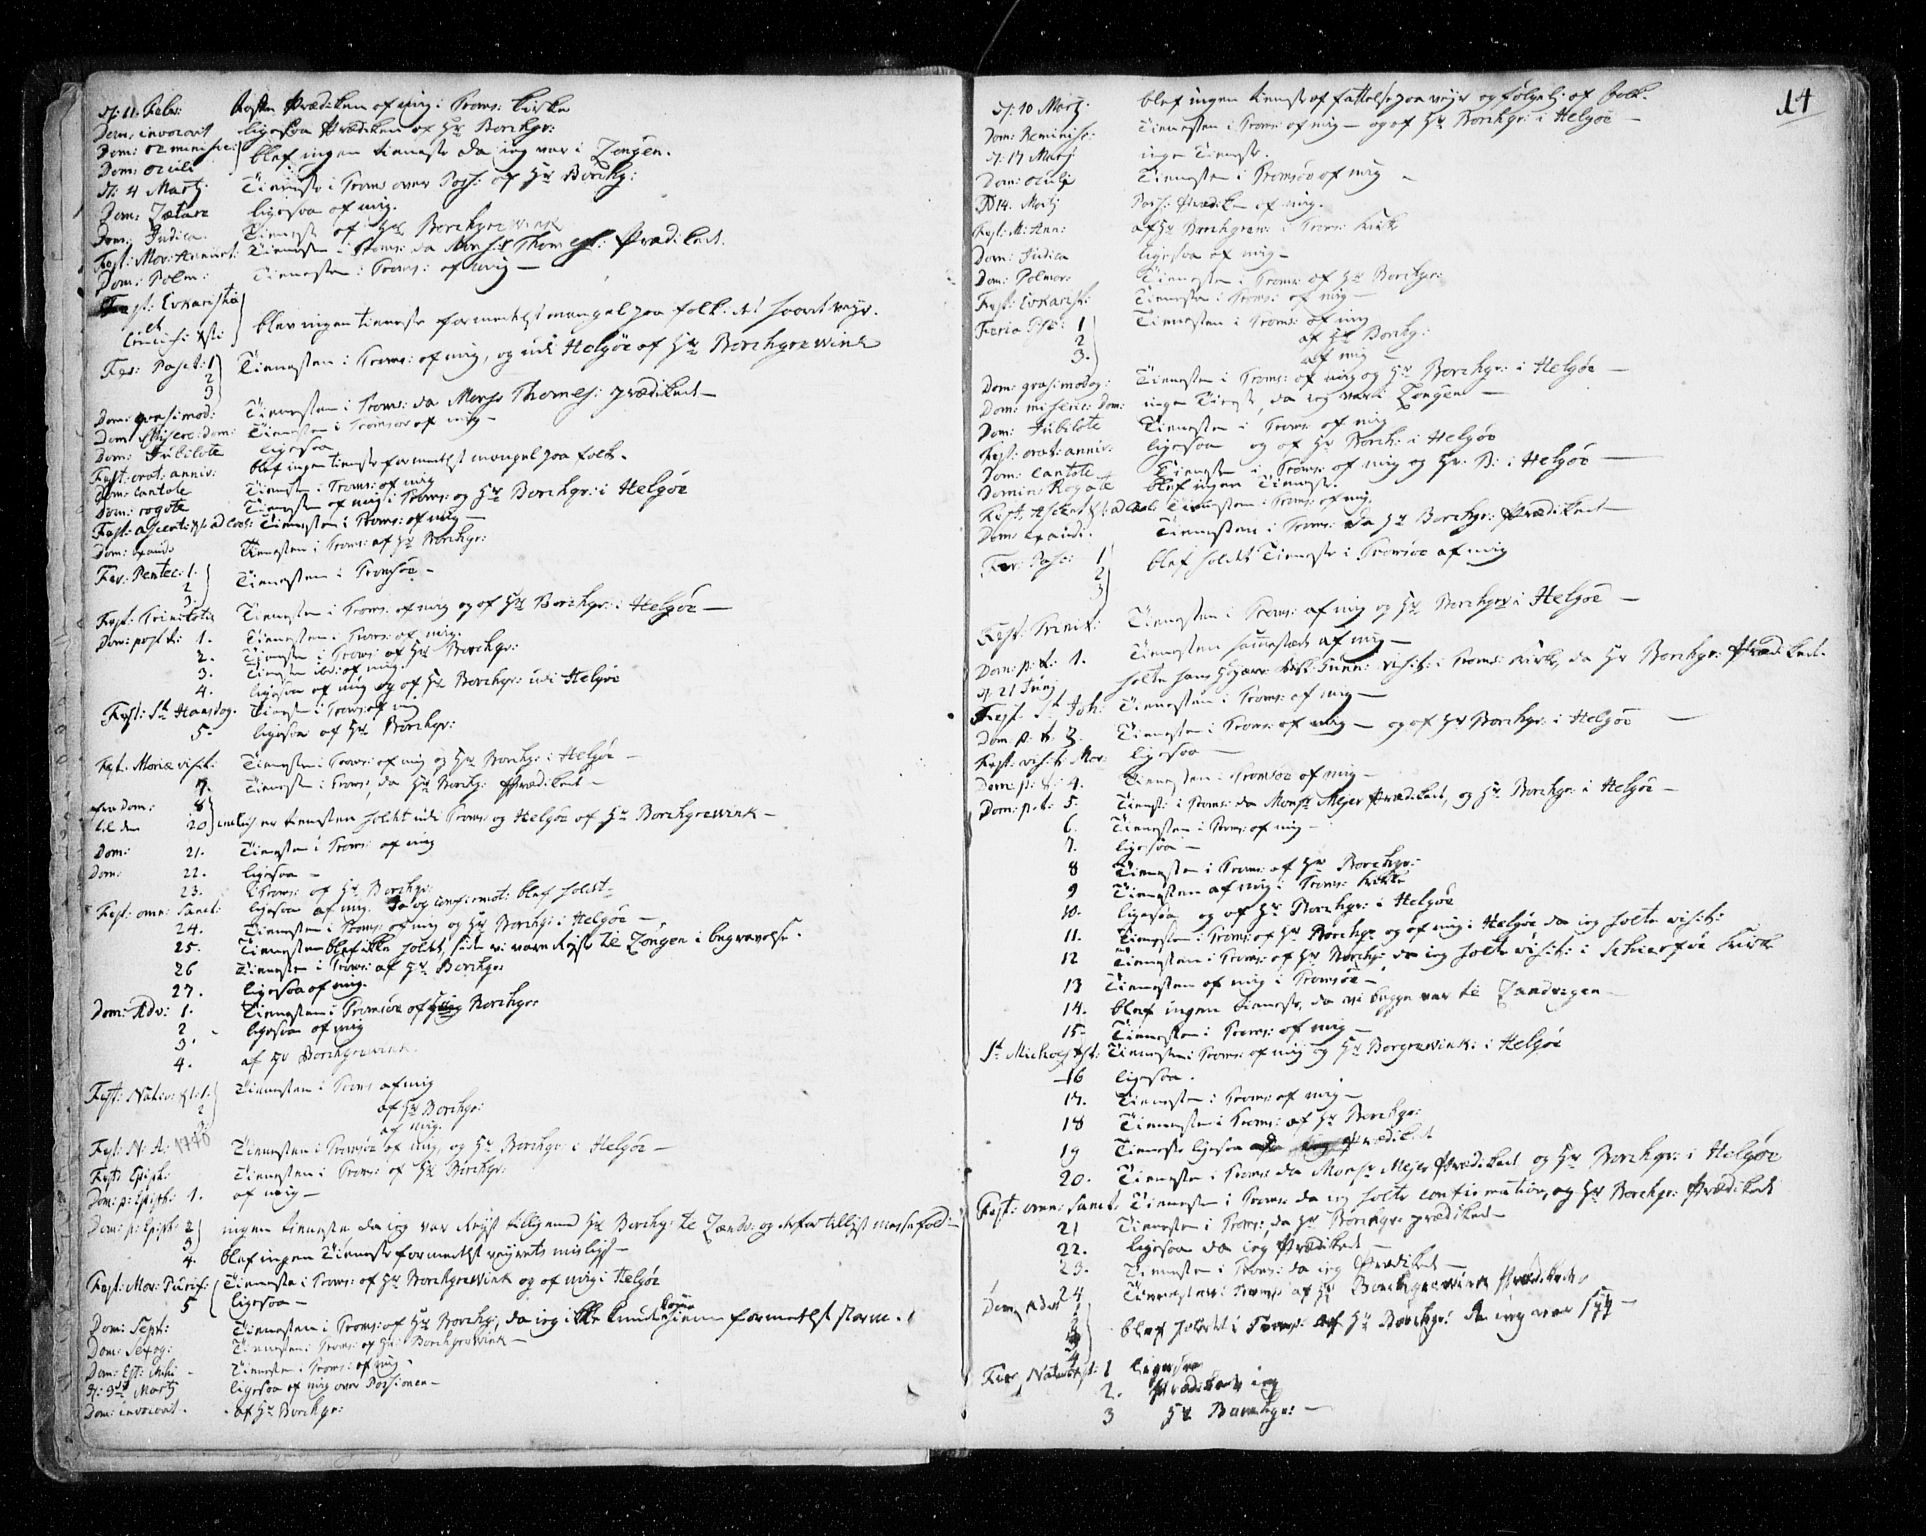 d: 11 Febr: Faste Prædiken af mig i Troms: Kirke
Dom: invocavit ligesaa Prædiken af Hr Borchgr:
Dom: reminisce:
Dom: oculi blef ingen tieneste da ieg var i Longen.
d: 4 Martj Tieneste i Troms over Pass: af Hr Borchg:
Dom: Lætare ligesaa af mig.
Dom: Judica. Tieneste af Hr Borchgrewink
Fest: Mar: Annunt: Tienesten i Troms: da Prædiket.
Dom: Palm: Tienesten i Troms: af mig —
Fest: Evkaristiæ
blev ingen tieneste formedelst mangel paa folk:
Fer: Pasc: 1 Tienesten i Troms: af mig, og udi Helgøe af Hr Borchgrewink
2
3
Dom: qvasimod: Tienesten i Troms: da Mons: Thomes: prædiket —
Dom: Misere: dom: Tienesten i Tromsøe af mig —
Dom: Jubilate ligesaa
Fest: orat: anniv: blef ingen tieneste formedelst mangel paa folk.
Dom: Cantate Tienesten i Troms: af mig
Dom: rogate Tienesten af mig i Troms: og Hr Borchgr: i Helgøe
Fest: ascent: Tienesten i Troms: af mig —
Dom: exaudi Tienesten i Troms: af Hr Borchgr:
Fer: Pentec: 1. Tienesten i Tromsøe —
2
3.
Fest: Trinitatis Tienesten i Troms: af mig og af Hr Borchgr: i Helgøe —
Dom: post t: 1. Tienesten i Troms: af mig.
2. Tienesten i Troms af Hr Borchgr:
3. Tienesten af mig.
4. ligesaa af mig og af Hr Borchgr: udi Helgøe
Fest: St Hansdag. Tienest i Troms: af mig
5. ligesaa af Hr Borchgr:
Fest: Mariæ visit: Tienesten i Troms: af mig og Hr Borchgr: i Helgøe —
7. Tienesten i Troms: da Hr Borchg: Prædiket —
fra Dom: 8
til den 20 er tienesten holdt udi Troms: og Helgøe af Hr Borchgrewink —
Dom: 21. Tienesten i Troms: af mig
Dom: 22. ligesaa —
23. i Troms: af Hr Borchgr:
Fest: omn: Sanct: ligesaa af mig. Da og confirmat: blef holdt —
24. Tienesten i Troms: af mig og Hr Borchgr: i Helgøe —
25. Tienesten blef ikke holdt, siden vi vare Reist til Longen i begravelse.
26 Tienesten i Troms: af Hr Borchgr:
27. ligesaa af mig.
Dom: Adv: 1. Tienesten i Tromsøe af Borchgr:
2 ligesaa af mig
3.
4. af Hr Borchgrewink.
Fest: Nativ: Xti: 1. Tienesten i Troms af mig
2 af Hr Borchgr:
af mig.
Fest: N: A: 1746 Tienesten i Tromsøe af mig, og Hr Borchgr: i Helgøe —
Fest: Epiph: Tienesten i Troms: af Hr Borchgr:
Dom: p: Epiph: 1. af mig —
Dom: p: Epiph: 2 ingen tieneste da ieg var Reist tilligemed Hr Borchg: til
3
4. blef ingen Tieneste formedelst veyrets
Fest: Mar: Purif: Tieneste i Troms: af Hr Borchgrewink og af mig i Helgøe
5 ligesaa —
Dom: Sept: Tienesten i Troms: af Hr Borchg:, da ieg ikke kunde formedelst storm.
Dom: Sexag: Tienesten i Troms: af Hr Borchgrewink —
Dom: Est: Mihi — Tienesten i Troms: af mig.
d: 3 Martj ligesaa af mig over Passionen —
Dom: invocavit. af Hr Borchgr:
14
d: 10 Martj blef ingen tieneste af fattelse paa veyr og følgelig af folk.
Dom: Reminisc: Tienesten i Troms: af mig — og af Hr Borchgr: i Helgøe —
d: 17 Martj ingen Tieneste.
Dom: oculj Tienesten i Tromsøe af mig —
Martj Pass: Prædiken af mig.
Fest: M: Ann: af Hr Borchgrew: i Troms: Kirke
Dom: Judica ligesaa af mig —
Dom: Palmar: Tienesten i Troms: af Hr Borchgr:
Fest: Evkarist: Tienesten i Troms: af mig —
Feria 1 Tienesten i Troms: af mig
2 af Hr Borchg:
3. af mig —
Dom: qvasimodog: Tienesten i Troms: af mig og Hr Borchgr: i Helgøe —
Dom: miseric: Dom: ingen Tieneste, da ieg var i Longen —
Dom: Jubilate Tienesten i Troms: af mig
Fest: orat: anniv: ligesaa og af Hr Borch: i Helgøe
Dom: Cantate Tienesten i Troms: af mig og Hr. B: i Helgøe —
Domin: Rogate blef ingen Tieneste.
Fest: Ascens: Tienesten i Troms: af mig.
Dom: exaudi. Tienesten i Troms: da Hr Borchgr: Prædiket —
Fer: 1 blef holdt Tieneste i Tromsøe af mig
2
3
Fest: Trinit: Tienesten i Troms: af mig og Hr Borchgr: i Helgøe —
Dom: p: t: 1. Tienesten af mig —
d: 21 Junj holte hans visit: i Troms: Kirke, da Hr Borchgr: Prædiket.
Fest: St Joh: Tienesten i Troms: af mig —
Dom: p: t: 3. Tienesten i Troms: af mig — og af Hr Borchgr: i Helgøe —
Fest: visit: Mar: ligesaa —
Dom: p: t: 4. Tienesten i Tromsøe af mig —
Dom: p: t: 5. Tienest: i Troms: da Monsr Mejer Prædiket, og Hr Borchgr: i Helgøe —
6. Tienesten i Troms: af mig —
7. ligesaa —
8 Tienesten i Troms: af Hr Borchgr:
9 Tienesten af mig i Troms: Kirke
10. ligesaa og af Hr Borchgr: i Helgøe
11. Tienesten i Troms: af Hr Borchgr og af mig i Helgøe da ieg holte visit:
12 Tienesten i Troms: af Hr Borchg: da ieg holte visit: i Kirke
13 Tienesten af mig i Tromsøe —
14. blef ingen tieneste, da vi begge var til
15. Tienesten i Troms: af mig —
St Michaelis: Tienesten i Troms: af mig og Hr Borgrewink: i Helgøe
16 ligesaa.
17. Tienesten i Troms: af mig —
18 Tienesten i Troms: af Hr Borchgr:
19 Tieneste ligesaa
20. Tienesten i Troms: da Monsr Mejer Prædiket og Hr Borchgr: i Helgøe
Fest: omn: Sanct: Tienesten i Troms: da ieg holte confirmation, og Hr Borchgr: Prædiket
21 Tienesten i Troms: da Hr Borchgr: prædiket —
22. ligesaa da ieg Prædiket —
23. Tienesten i Troms: da ieg Prædiket —
24 Tienesten i Troms: af Hr Borchgrewink Prædiket,
Dom: Adv: 1
2
3
4 blef holdet i Troms: af Hr Borchgr: da ieg var syg —
Fer: Nativ: Xti: 1 ligesaa
2. Prædiket ieg
3 Hr Borchgr: —